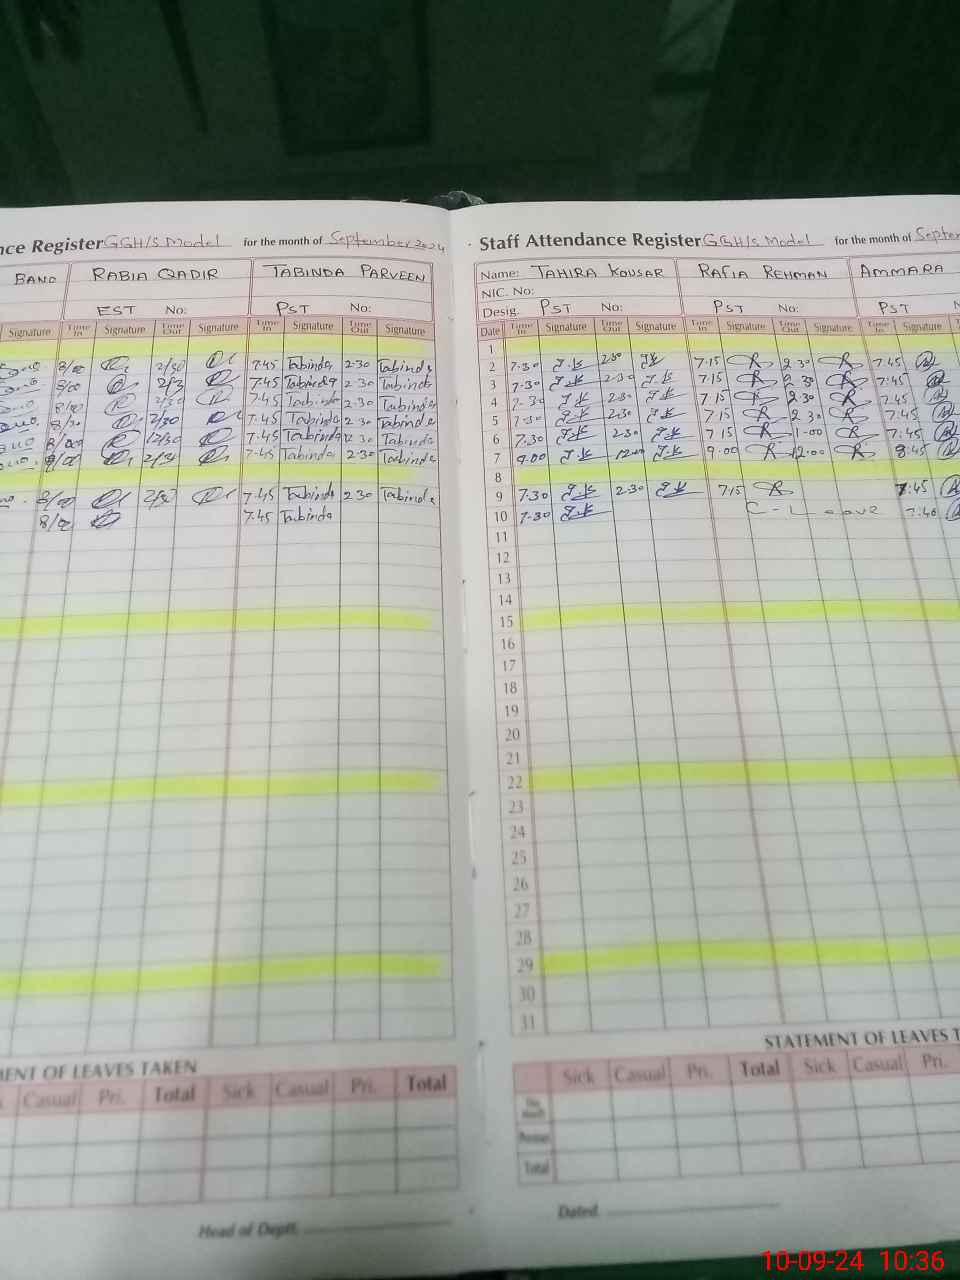 nce Register GGH/S Model for the month of September 2024
BANO RABIA QADIR TABINDA PARVEEN
EST No: PST No:
Signature Time In Signature Time Out Signature Time In Signature Time Out Signature
8/00 2/30 7.45 Tabinda 2.30 Tabinda
8/00 7.45 Tabinda 2.30 Tabinda
8/00 2/30 7.45 Tabinda 2.30 Tabinda
8/30 2/30 7.45 Tabinda 2.30 Tabinda
12/30 7.45 Tabinda 2.30 Tabinda
2/30 7.45 Tabinda 2.30 Tabinda
8/00 2/30 7.45 Tabinda 2.30 Tabinda
8/00 7.45 Tabinda
MENT OF LEAVES TAKEN
Casual Pri. Total Sick Casual Pri. Total
Head of Deptt.
Staff Attendance Register GGH/S Model for the month of Septem
Name: TAHIRA KOUSAR RAFIA REHMAN AMMARA
NIC. No:
Desig. PST No: PST No: PST N
Date Time In Signature Time Out Signature Time In Signature Time Out Signature Time In Signature
1
2 7.30 T.K 2.30 T.K 7.15 2.30 7.45
3 7.30 T.K 2.30 T.K 7.15 2.30 7.45
4 7.30 T.K 2.30 T.K 7.15 2.30 7.45
5 7.30 T.K 2.30 T.K 7.15 2.30 7.45
6 7.30 T.K 2.30 T.K 7.15 1.00 7.45
7 9.00 T.K 12.00 T.K 9.00 12.00 8.45
8
9 7.30 T.K 2.30 T.K 7.15 7.45
10 7.30 T.K C-Leave 7.40
11
12
13
14
15
16
17
18
19
20
21
22
23
24
25
26
27
28
29
30
31
STATEMENT OF LEAVES T
Sick Casual Pri. Total Sick Casual Pri.
Total
Dated.
10-09-24 10:36